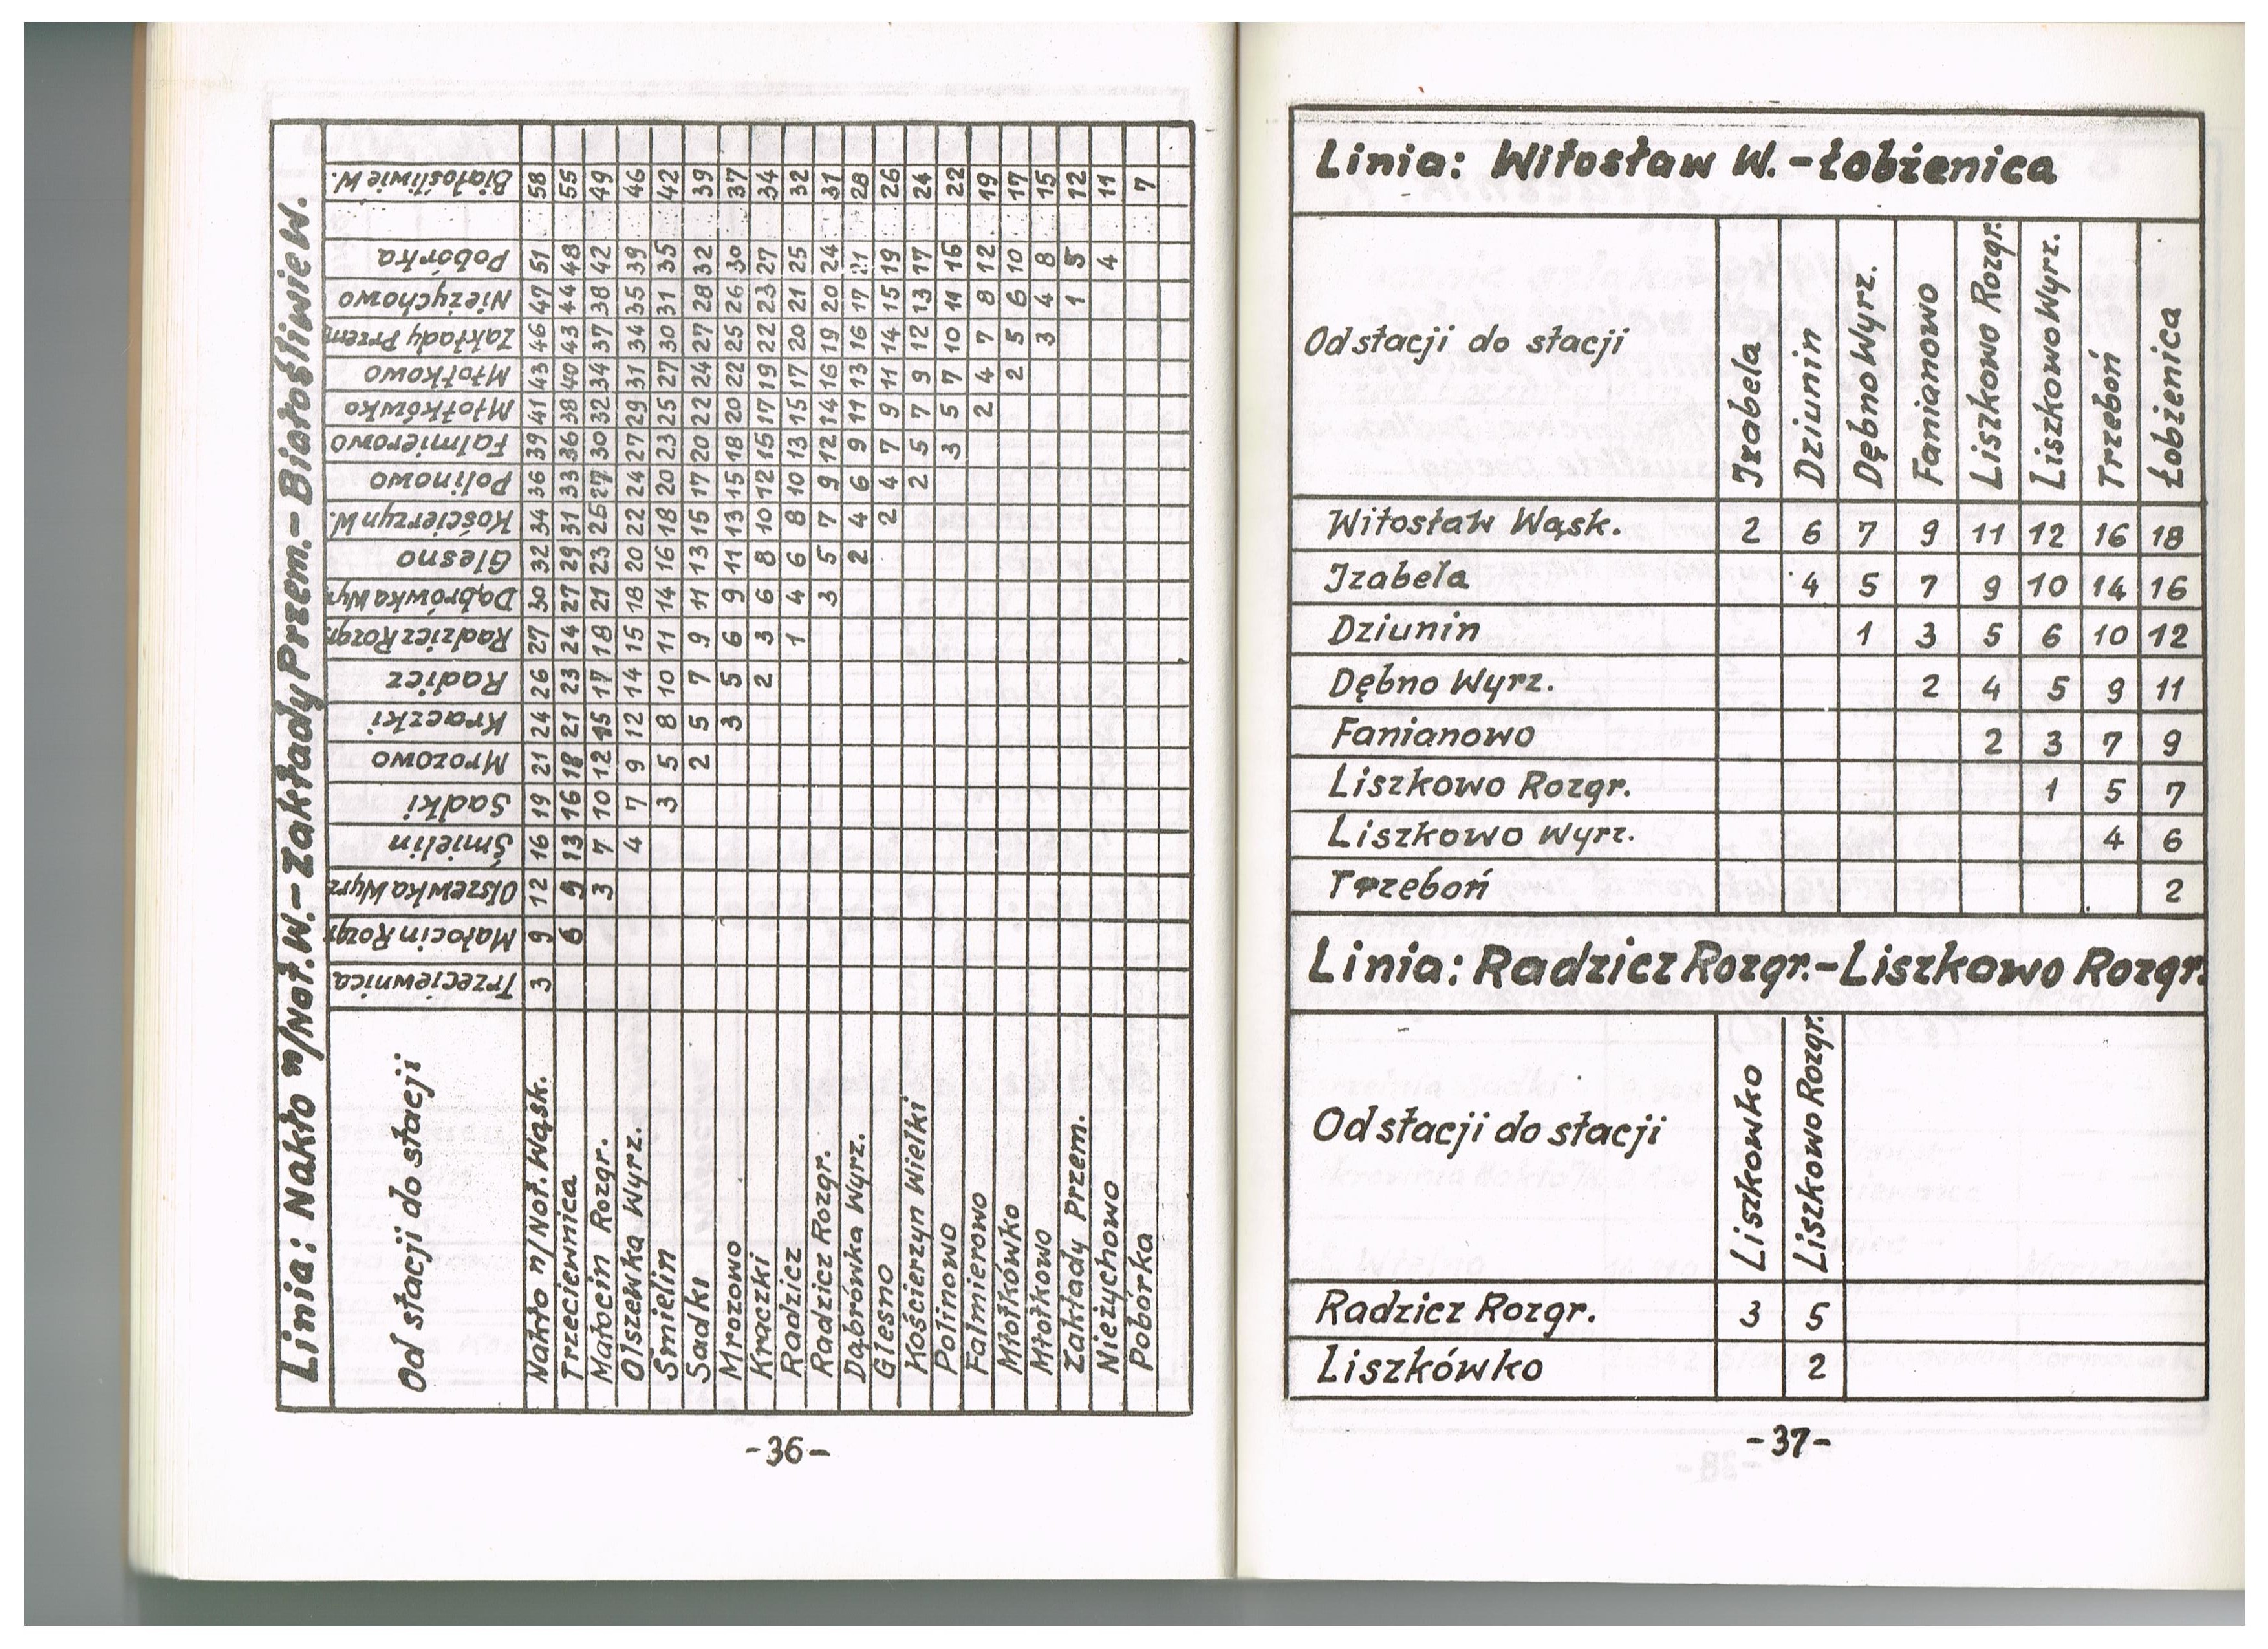 Linia: Nakło n/Not.W.-Zakłady Przem.-Białośliwie W.
Od stacji do stacji
Trzeciewnica
Matocin Rozgr.
Olszewka Wyrz
Śmielin
Sadki
Mrozowo
Kraczki
Radicz
Radzicz Rozgr.
Dąbrówka Wyr
Glesno
Kościerzyn W.
Polinowo
Falmierowo
Młotkówko
Młotkowo
Zakłady Przem
Nieżychowo
Pobórka
Białośliwie W.
Nakło n/Not. Wąsk. 3 9 12 16 19 21 24 26 27 30 32 34 36 39 41 43 46 47 51 58
Trzeciewnica 6 9 13 16 18 21 23 24 27 29 31 33 36 38 40 43 44 48 55
Matocin Rozgr. 3 7 10 12 15 17 18 21 23 25 27 30 32 34 37 38 42 49
Olszewka Wyrz. 4 7 9 12 14 15 18 20 22 24 27 29 31 34 35 39 46
Śmielin 3 5 8 10 11 14 16 18 20 23 25 27 30 31 35 42
Sadki 2 5 7 9 11 13 15 17 20 22 24 27 28 32 39
Mrozowo 3 5 6 9 11 13 15 18 20 22 25 26 30 37
Kraczki 2 3 6 8 10 12 15 17 19 22 23 27 34
Radzicz 1 4 6 8 10 13 15 17 20 21 25 32
Radzicz Rozgr. 3 5 7 9 12 14 16 19 20 24 31
Dąbrówka Wyrz. 2 4 6 9 11 13 16 17 21 28
Glesno 2 4 7 9 11 14 15 19 26
Kościerzyn Wielki 2 5 7 9 12 13 17 24
Polinowo 3 5 7 10 11 16 22
Falmierowo 2 4 7 8 12 19
Młotkówko 2 5 6 10 17
Młotkowo 3 4 8 15
Zakłady Przem. 1 5 12
Nieżychowo 4 11
Pobórka 7
-36-
Linia: Witosław W.-Łobżenica
Od stacji do stacji
Izabela
Dziunin
Dębno Wyrz.
Fanianowo
Liszkowo Rozgr.
Liszkowo Wyrz.
Trzeboń
Łobżenica
Witosław Wąsk. 2 6 7 9 11 12 16 18
Izabela 4 5 7 9 10 14 16
Dziunin 1 3 5 6 10 12
Dębno Wyrz. 2 4 5 9 11
Fanianowo 2 3 7 9
Liszkowo Rozgr. 1 5 7
Liszkowo Wyrz. 4 6
Trzeboń 2
Linia: Radzicz Rozgr.-Liszkowo Rozgr.
Od stacji do stacji
Liszkowko
Liszkowo Rozgr.
Radzicz Rozgr. 3 5
Liszkówko 2
-37-